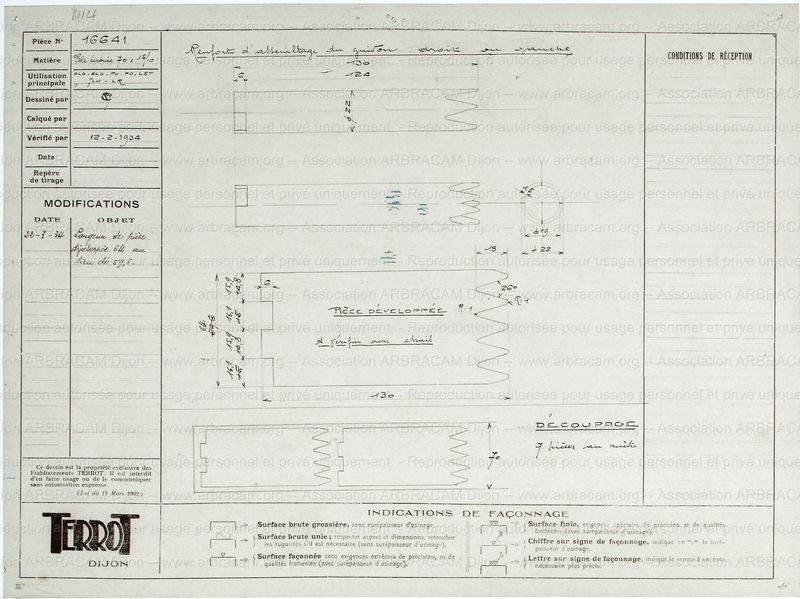 Pièce N° 16641
Matière
Utilisation principale
Dessiné par
Calqué par
Vérifié par 12-2-1934
Date
Repère de tirage
MODIFICATIONS
DATE OBJET
22-3-34 Largeur de pièce
développée 64 au
lieu de 59,6.
Ce dessin est la propriété exclusive des
Etablissements TERROT. Il est interdit
d'en faire usage ou de le communiquer
sans autorisation expresse.
(Loi du 11 Mars 1902.)
TERROT
DIJON
Renfort d'assemblage du guidon droite ou gauche
130
6
124
ø 22
1,5
ø 19
ø 22
18
6
PIÈCE DÉVELOPPÉE
A vérifier avec essai
R.1
R.1
260
64
130
70
DÉCOUPAGE
7 pièces au mètre
CONDITIONS DE RÉCEPTION
INDICATIONS DE FAÇONNAGE
Surface brute grossière, sans surépaisseur d'usinage.
Surface brute unie : respecter aspect et dimensions, retoucher
les rugosités s'il est nécessaire (sans surépaisseur d'usinage).
Surface façonnée sans exigences extrêmes de précision, ni de
qualités frottantes (avec surépaisseur d'usinage).
Surface finie, exigences spéciales de précision et de qualités
frottantes (avec surépaisseur d'usinage).
Chiffre sur signe de façonnage, indique en m/m la surépaisseur d'usinage.
Lettre sur signe de façonnage, indique le renvoi à une note
nécessaire plus précise.
www.arbracam.org – Association ARBRACAM Dijon –
Reproduction autorisée pour usage personnel et privé uniquement